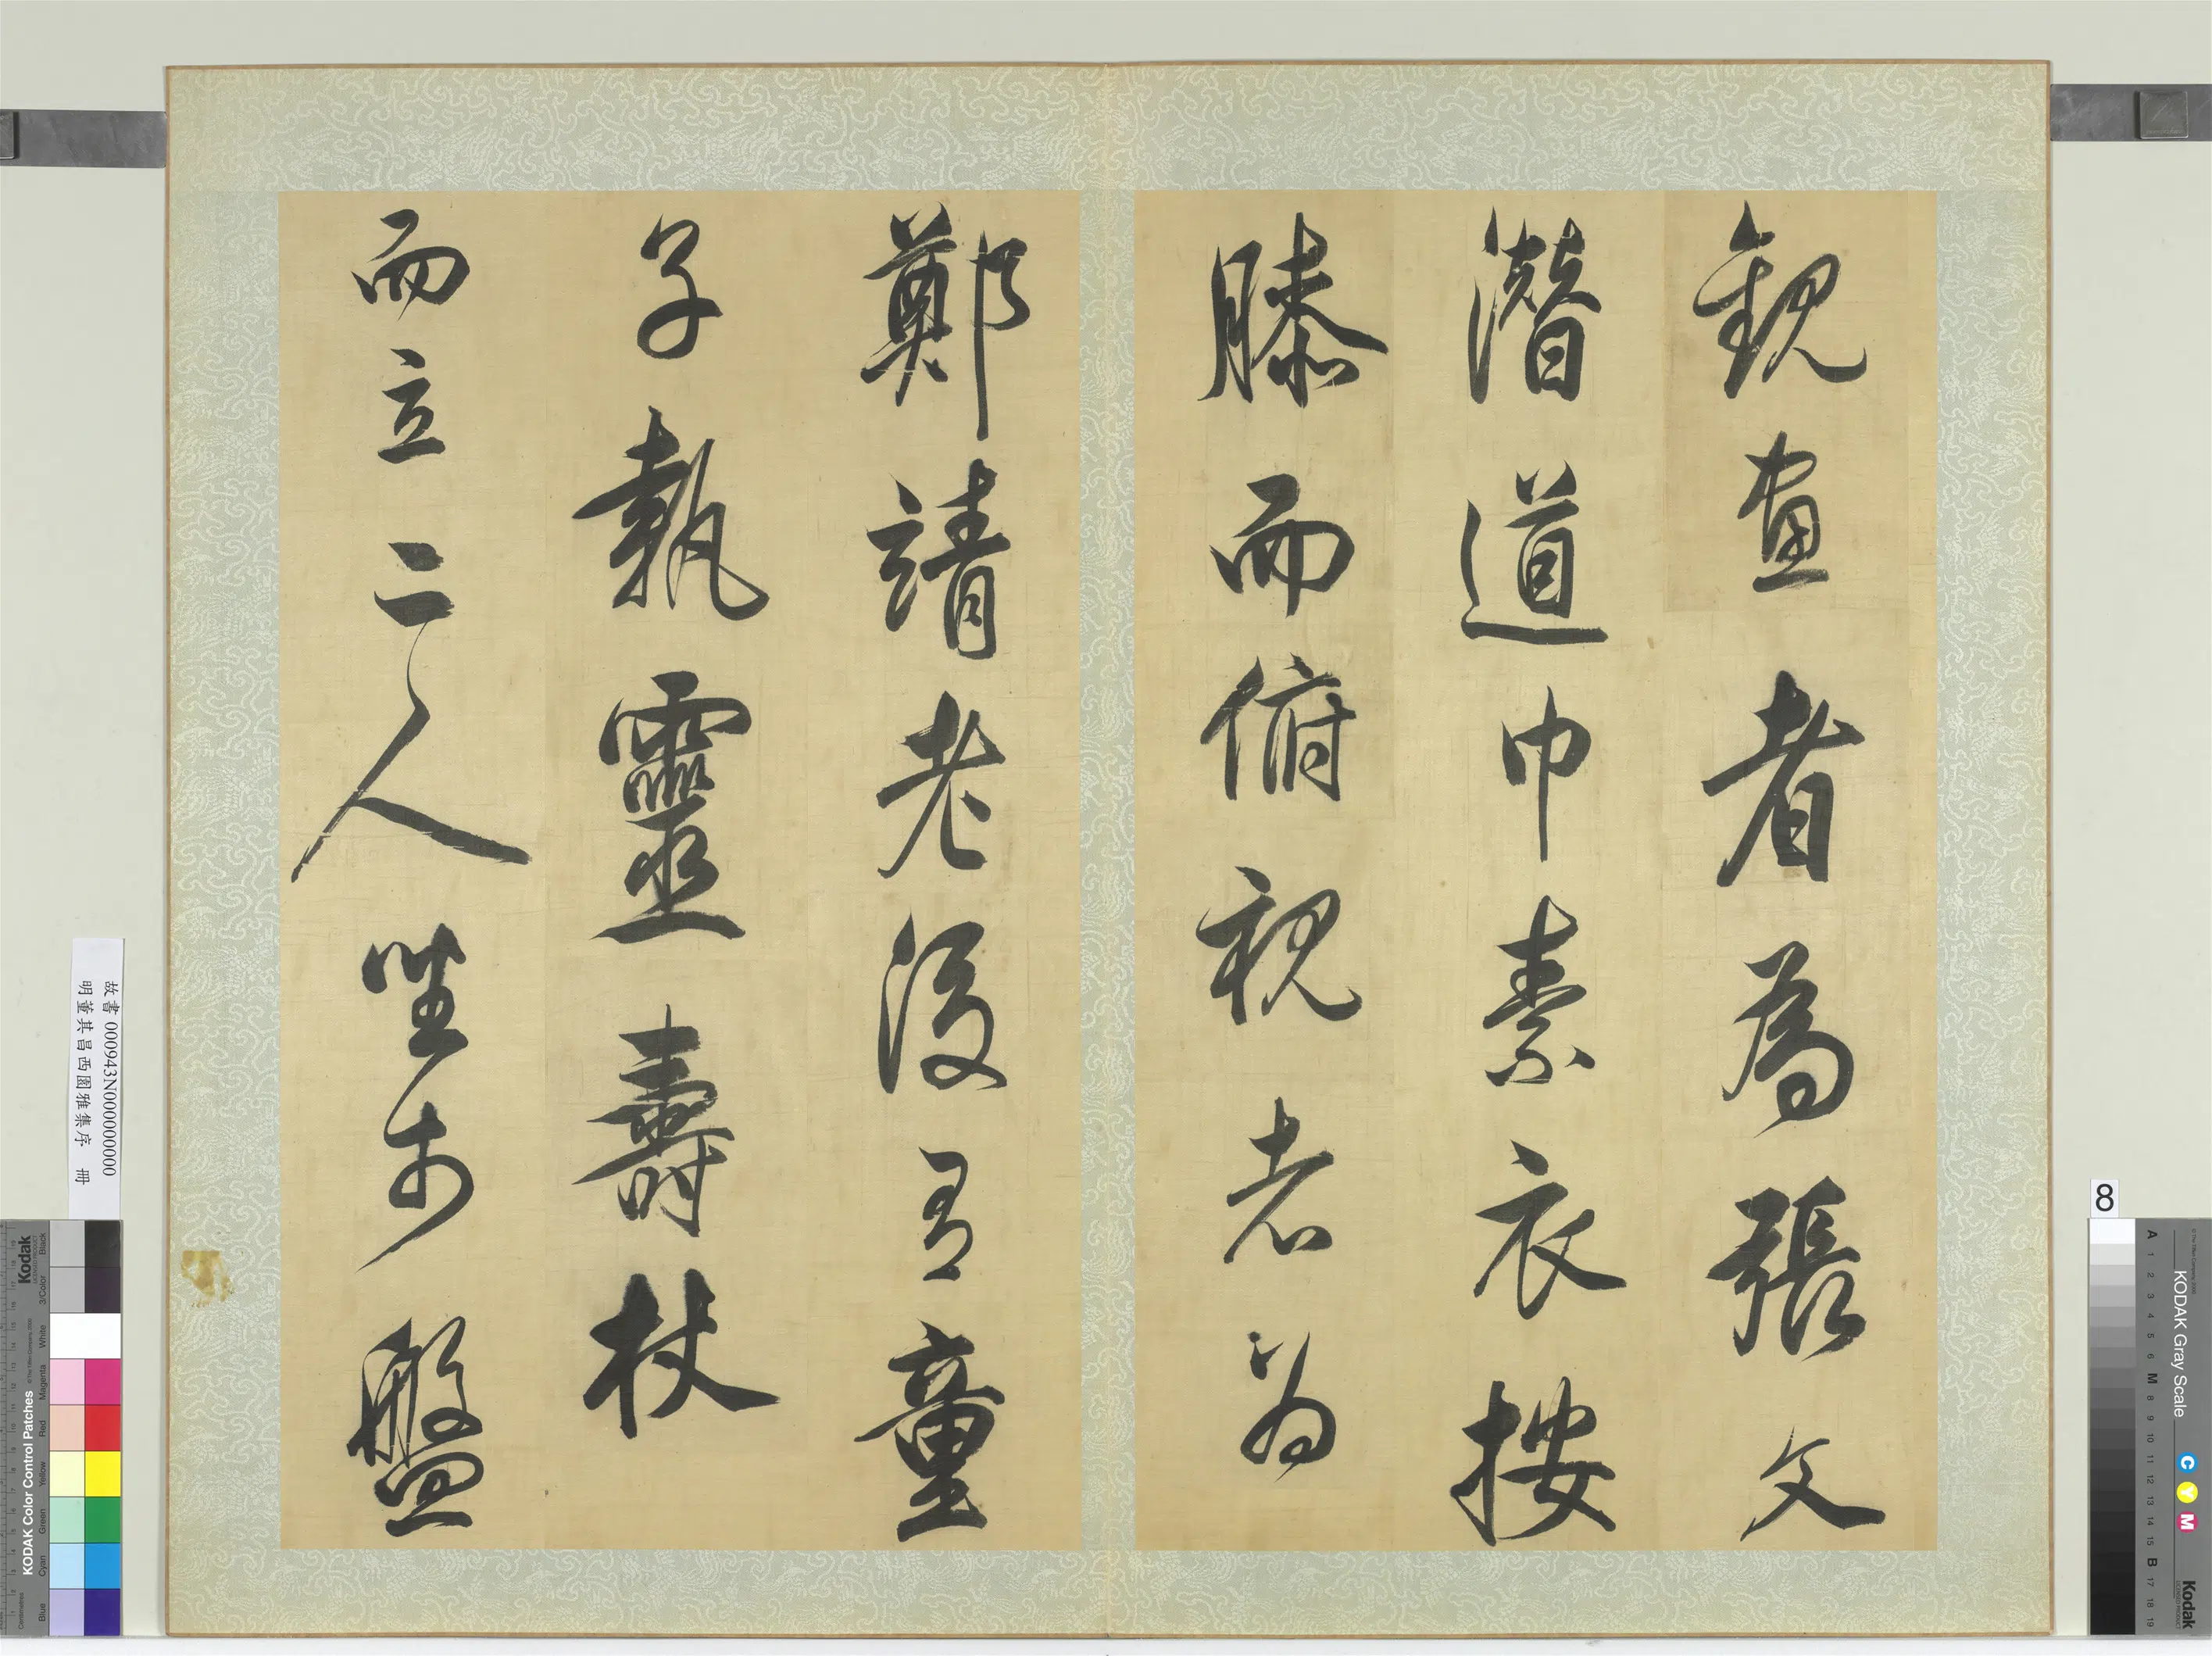 觀畫者為張文
潛道巾素衣按
膝而俯視者為
鄭靖老後有童
子執靈壽杖
而立二人坐於盤
故書 000943N000000000
明董其昌西園雅集序 冊
8
KODAK Gray Scale
C Y M
Kodak
A 1 2 3 4 5 6 M 8 9 10 11 12 13 14 15 B 17 18 19
Kodak
KODAK Color Control Patches
Blue Cyan Green Yellow Red Magenta White 3/Color Black